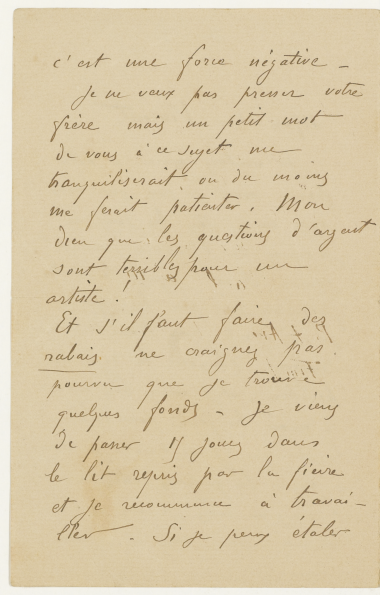 c'est une force négative –
Je ne veux pas presser votre
frère mais un petit mot
de vous à ce sujet me
tranquiliserait ou du moins
me ferait patienter. Mon
dieu que les questions d'argent
sont terribles pour un
artiste !
Et s'il faut faire des
rabais ne craignez pas
pourvu que je trouve
quelques fonds – Je viens
de passer 15 jours dans
le lit repris par la fièvre
et je recommence à travai-
ller – Si je peux étaler